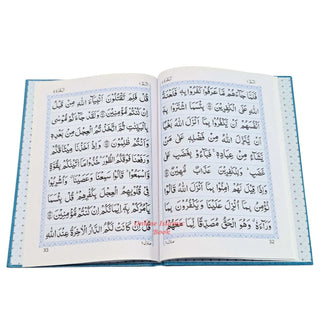 فَلَمَّا جَآءَهُمْ مَّا عَرَفُوْا كَفَرُوْا بِهٖ فَلَعْنَةُ
اللّٰهِ عَلَى الْكٰفِرِيْنَ ۝ بِئْسَمَا اشْتَرَوْا بِهٖٓ
اَنْفُسَهُمْ اَنْ يَّكْفُرُوْا بِمَآ اَنْزَلَ اللّٰهُ بَغْيًا
اَنْ يُّنَزِّلَ اللّٰهُ مِنْ فَضْلِهٖ عَلٰى مَنْ
يَّشَآءُ مِنْ عِبَادِهٖ فَبَآءُوْ بِغَضَبٍ عَلٰى
غَضَبٍ وَلِلْكٰفِرِيْنَ عَذَابٌ مُّهِيْنٌ ۝ وَاِذَا
قِيْلَ لَهُمْ اٰمِنُوْا بِمَآ اَنْزَلَ اللّٰهُ قَالُوْا
نُؤْمِنُ بِمَآ اُنْزِلَ عَلَيْنَا وَيَكْفُرُوْنَ بِمَا
وَرَآءَهٗ وَهُوَ الْحَقُّ مُصَدِّقًا لِّمَا مَعَهُمْ
32
قُلْ فَلِمَ تَقْتُلُوْنَ اَنْۢبِيَآءَ اللّٰهِ مِنْ قَبْلُ
اِنْ كُنْتُمْ مُّؤْمِنِيْنَ ۝ وَلَقَدْ جَآءَكُمْ مُّوْسٰى
بِالْبَيِّنٰتِ ثُمَّ اتَّخَذْتُمُ الْعِجْلَ مِنْۢ بَعْدِهٖ
وَاَنْتُمْ ظٰلِمُوْنَ ۝ وَاِذْ اَخَذْنَا مِيْثَاقَكُمْ
وَرَفَعْنَا فَوْقَكُمُ الطُّوْرَ خُذُوْا مَآ اٰتَيْنٰكُمْ بِقُوَّةٍ
وَّاسْمَعُوْا قَالُوْا سَمِعْنَا وَعَصَيْنَا وَاُشْرِبُوْا
فِيْ قُلُوْبِهِمُ الْعِجْلَ بِكُفْرِهِمْ قُلْ بِئْسَمَا
يَاْمُرُكُمْ بِهٖٓ اِيْمَانُكُمْ اِنْ كُنْتُمْ مُّؤْمِنِيْنَ ۝
قُلْ اِنْ كَانَتْ لَكُمُ الدَّارُ الْاٰخِرَةُ عِنْدَ اللّٰهِ
33